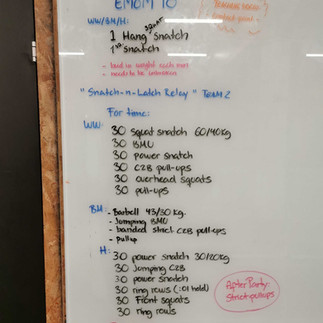 EMOM 10
WW/BM/H:
1 Hang squat snatch
1 snatch
- build in weight each
- needs to be unbroken
"Snatch-n-Latch Relay" TEAM 2
For time:
WW: 30 squat snatch 60/40kg
30 BMU
30 power snatch
30 C2B pull-ups
30 overhead squats
30 pull-ups
BM: - Barbell 43/30 kg.
- Jumping BMU
- banded strict C2B pull-ups
- pullup
H:
30 power snatch 30/20kg
30 Jumping C2B
30 power snatch
30 ring rows (:01 hold)
30 Front squats
30 ring rows
After Party:
Strict pullups